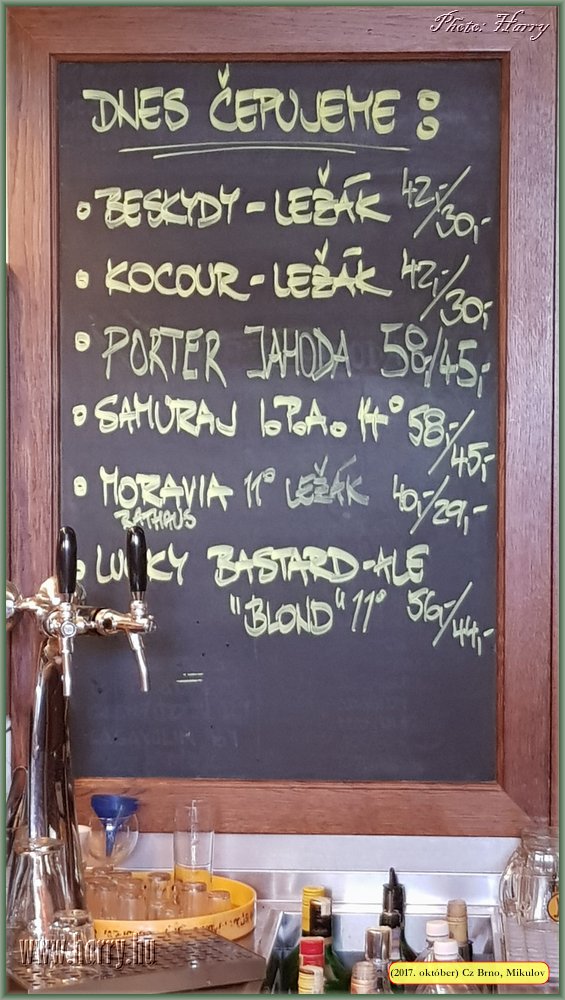 Photo: Harry
DNES ČEPUJEME:
BESKYDY - LEŽÁK 42,-/30,-
KOCOUR - LEŽÁK 42,-/30,-
PORTER JAHODA 58,-/45,-
SAMURAJ I.P.A. 14° 58,-/45,-
MORAVIA 11° LEŽÁK 40,-/29,-
RATHAUS
LUCKY BASTARD - ALE
"BLOND" 11° 56,-/44,-
www.horry.hu
(2017. október) Cz Brno, Mikulov